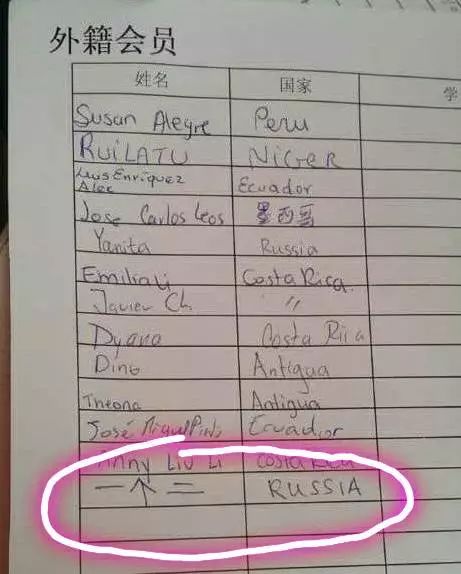 外籍会员
姓名 国家 学
Susan Alegre Peru
RUILATU NIGER
Luis Enriquez Ecuador
Alec
Jose Carlos Leos 墨西哥
Yanita Russia
Emilia Li Costa Rica.
Javier Ch. "
Dyana Costa Rica
Dino Antigua
Theona Antigua
José Miguel Ecuador
Anny Liu Li Costa Rica
一个二 RUSSIA